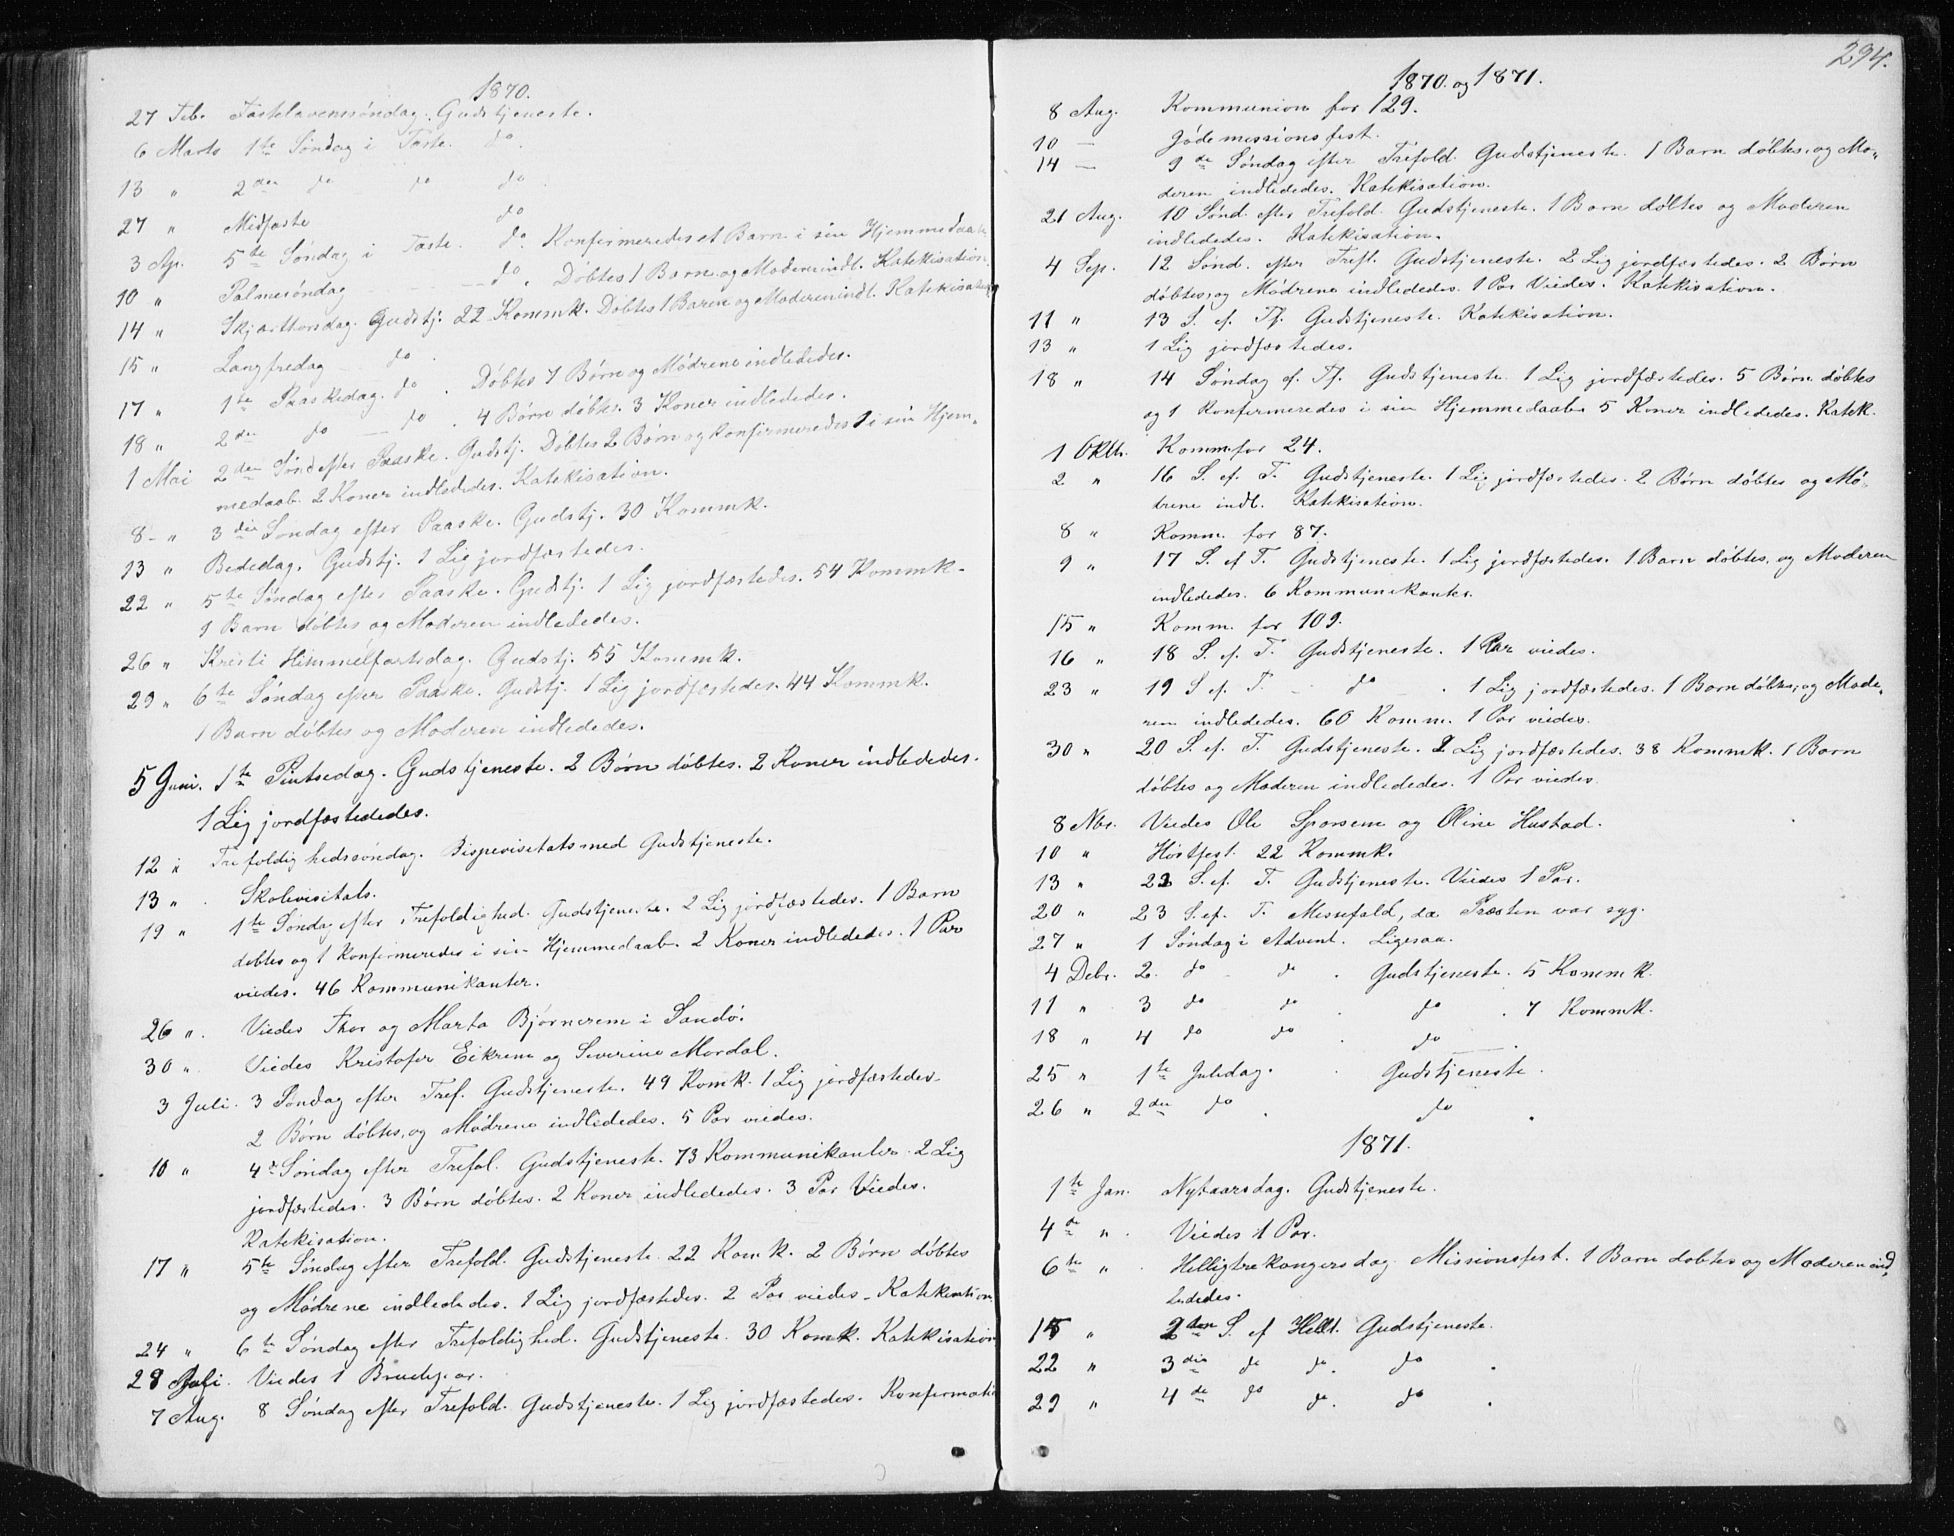 1870.
27 Feb. Fastelavenssøndag. Gudstjeneste.
6 Marts 1te Søndag i Faste. do.
13 " 2den do do do
27 " Midfaste do
3 Ap. 5te Søndag i Faste. do. Konfirmeredes et Barn i sin Hjemmedaab
10 " Palmesøndag do. Døbtes 1 Barn og Moderen indl. Katekisation.
14 " Skjærtorsdag. Gudstj. 22 Kommk. Døbtes 1 Barn og Moderen indl. Katekisation
15 " Langfredag do.
17 " 1te Paaskedag. do. Døbtes 7 Børn og Mødrene indlededes.
18 " 2den do do. 4 Børn døbtes. 3 Koner indlededes.
1 Mai 2den Sønd efter Paaske. Gudstj. Døbtes 2 Børn og konfirmeredes 1 i sin Hjem-
medaab. 2 Koner indlededes. Katekisation.
8 - " 3die Søndag efter Paaske. Gudstj. 30 Kommk.
13 " Bededag. Gudstj. 1 Lig jordfæstedes.
22 " 5te Søndag efter Paaske. Gudstj. 1 Lig jordfæstedes. 54 Kommk.
1 Barn døbtes og Moderen indlededes.
26 " Kristi Himmelfartsdag. Gudstj. 55 Kommk.
29 " 6te Søndag efter Paaske. Gudstj. 1 Lig jordfæstedes. 44 Kommk.
1 Barn døbtes og Moderen indlededes.
5 Juni. 1te Pintsedag. Gudstjeneste. 2 Børn døbtes. 2 Koner indlededes.
1 Lig jordfæstededes.
12 " Trefoldighedssøndag. Bispevisitats med Gudstjeneste.
13 " Skolevisitats.
19 " 1te Søndag efter Trefoldighed. Gudstjeneste. 2 Lig jordfæstedes. 1 Barn
døbtes og 1 konfirmeredes i sin Hjemmedaab. 2 Koner indlededes. 1 Par
viedes. 46 Kommunikanter.
26 " Viedes Thor og Marta Bjørnerem i Sandø.
30 " Viedes Kristofer Eikrem og Severine Mordal.
3 Juli. 3 Søndag efter Tref. Gudstjeneste. 49 Komk. 1 Lig jordfæstedes.
2 Børn døbtes, og Mødrene indlededes. 5 Par viedes.
10 " 4de Søndag efter Trefol. Gudstjeneste. 73 Kommunikanter. 2 Lig
jordfæstedes. 3 Børn døbtes. 2 Koner indlededes. 3 Par Viedes.
Katekisation.
17 " 5te Søndag efter Trefold. Gudstjeneste. 22 Komk. 2 Børn døbtes
og Mødrene indlededes. 1 Lig jordfæstedes. 2 Par viedes. Katekisation.
24 " 6te Søndag efter Trefoldighed. Gudstjeneste. 30 Komk. Katekisation
28 Juli. Viedes 1 Brudepar.
7 Aug. 8 Søndag efter Trefold. Gudstjeneste. 1 Lig jordfæstedes. Konfirmation
294.
1870. og 1871.
8 Aug. Kommunion for 129.
10 — Jødemissionsfest.
14 — 9de Søndag efter Trefold. Gudstjeneste. 1 Barn døbtes, og Mo-
deren indlededes. Katekisation.
21 Aug. 10 Sønd. efter Trefold. Gudstjeneste. 1 Barn døbtes og Moderen
indlededes. Katekisation.
4 Sep. 12 Sønd. efter Trefl. Gudstjeneste. 2 Lig jordfæstedes. 2 Børn
døbtes, og Mødrene indlededes. 1 Par Viedes. Katekisation.
11 " 13 S. ef. Tf. Gudstjeneste. Katekisation.
13 " 1 Lig jordfæstedes.
18 " 14 Søndag ef. Tf. Gudstjeneste. 1 Lig jordfæstedes. 5 Børn døbtes
og 1 konfirmeredes i sin Hjemmedaab. 5 Koner indlededes. Katek.
1 Oktb. Komm for 24.
2 " 16 S. ef. T. Gudstjeneste. 1 Lig jordfæstedes. 2 Børn døbtes og Mø-
drene indl. Katekisation.
8 " Komm. for 87.
9 " 17 S. ef T. Gudstjeneste. 1 Lig jordfæstedes. 1 Barn døbtes, og Moderen
indlededes. 6 Kommunikanter.
15 " Komm. for 109.
16 " 18 S. ef. T. Gudstjeneste. 1 Par viedes.
23 " 19 S ef. T. do. 1 Lig jordfæstedes. 1 Barn døbtes, og Mode-
ren indlededes. 60 Komm. 1 Par viedes.
30 " 20 S. ef. T. Gudstjeneste. 2 Lig jordfæstedes. 38 Kommk. 1 Barn
døbtes og Moderen indlededes. 1 Par viedes.
8 Nbr. Viedes Ole Sporsem og Oline Hustad.
10 " Høstfest. 22 Kommk.
13 " 22 S. ef. T. Gudstjeneste. Viedes 1 Par.
20 " 23 S. ef. T. Messefald, da Præsten var syg.
27 " 1 Søndag i Advent. Ligesaa.
4 Debr. 2. do do. Gudstjeneste. 5 Kommk.
11 " 3 do do do. 7 Kommk.
18 " 4 do do. do.
25 " 1te Juledag. Gudstjeneste.
26 " 2den do. do.
1871.
1te Jan. Nytaarsdag. Gudstjeneste.
4de " Viedes 1 Par.
6te " Helligtrekongersdag. Missionsfest. 1 Barn døbtes og Moderen ind-
lededes.
15 " 2den S. ef Hellt. Gudstjeneste.
22 " 3die do do. do.
29 " 4de do do. do.